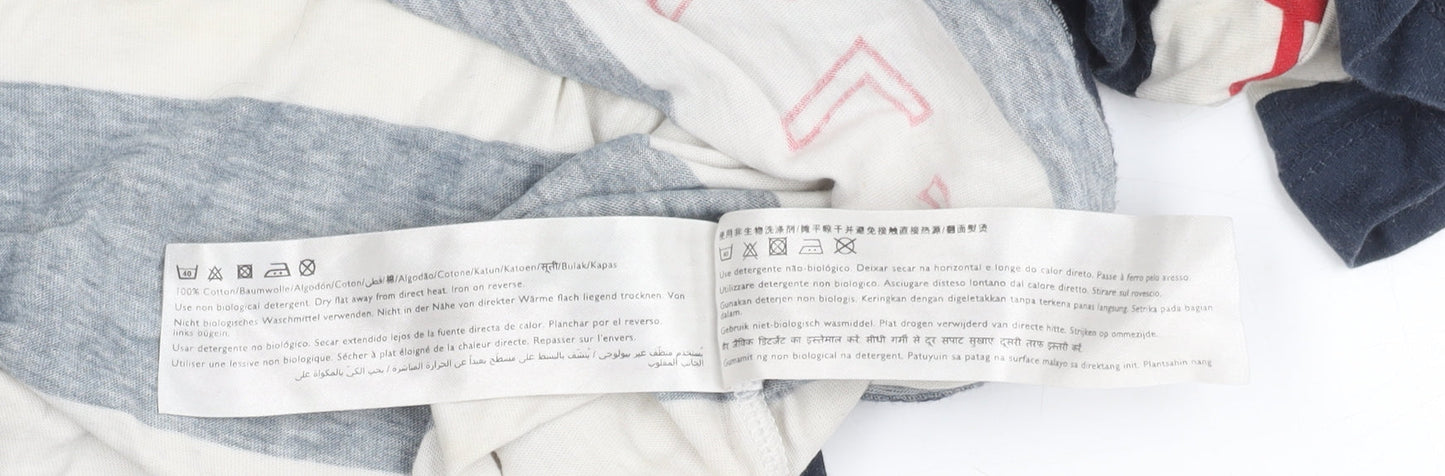 40
100% Cotton/Baumwolle/Algodón/Coton/قطن/綿/Algodão/Cotone/Katun/Katoen/सूती/Bulak/Kapas
Use non biological detergent. Dry flat away from direct heat. Iron on reverse.
Nicht biologisches Waschmittel verwenden. Nicht in der Nähe von direkter Wärme flach liegend trocknen. Von
links bügeln.
Usar detergente no biológico. Secar extendido lejos de la fuente directa de calor. Planchar por el reverso.
Utiliser une lessive non biologique. Sécher à plat éloigné de la chaleur directe. Repasser sur l'envers.
يُستخدم منظّف غير بيولوجي / يُنشّف بالبسط على مسطح بعيداً عن الحرارة المباشرة / يجب الكيّ بالمكواة على
الجانب المقلوب
使用非生物洗涤剂/摊平晾干并避免接触直接热源/翻面熨烫
40
Use detergente não-biológico. Deixar secar na horizontal e longe do calor direto. Passe à ferro pelo avesso
Utilizzare detergente non biologico. Asciugare disteso lontano dal calore diretto. Stirare sul rovescio.
Gunakan deterjen non biologis. Keringkan dengan digeletakkan tanpa terkena panas langsung. Setrika pada bagian
dalam.
Gebruik niet-biologisch wasmiddel. Plat drogen verwijderd van directe hitte. Strijken op ommezijde.
जैविक डिटर्जेंट का इस्तेमाल करें सीधी गर्मी से दूर सपाट सुखाएं दूसरी तरफ इस्तरी करें
Gumamit ng non biological na detergent. Patuyuin sa patag na surface malayo sa direktang init. Plantsahin nang